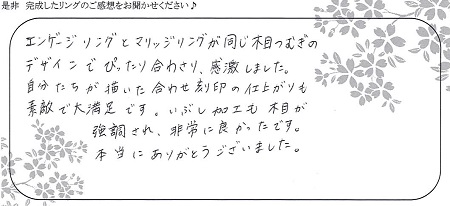 是非 完成したリングのご感想をお聞かせください♪
エンゲージリングとマリッジリングが同じ木目つむぎの
デザインでぴったり合わさり、感激しました。
自分たちが描いた合わせ刻印の仕上がりも
素敵で大満足です。いぶし加工も木目が
強調され、非常に良かったです。
本当にありがとうございました。